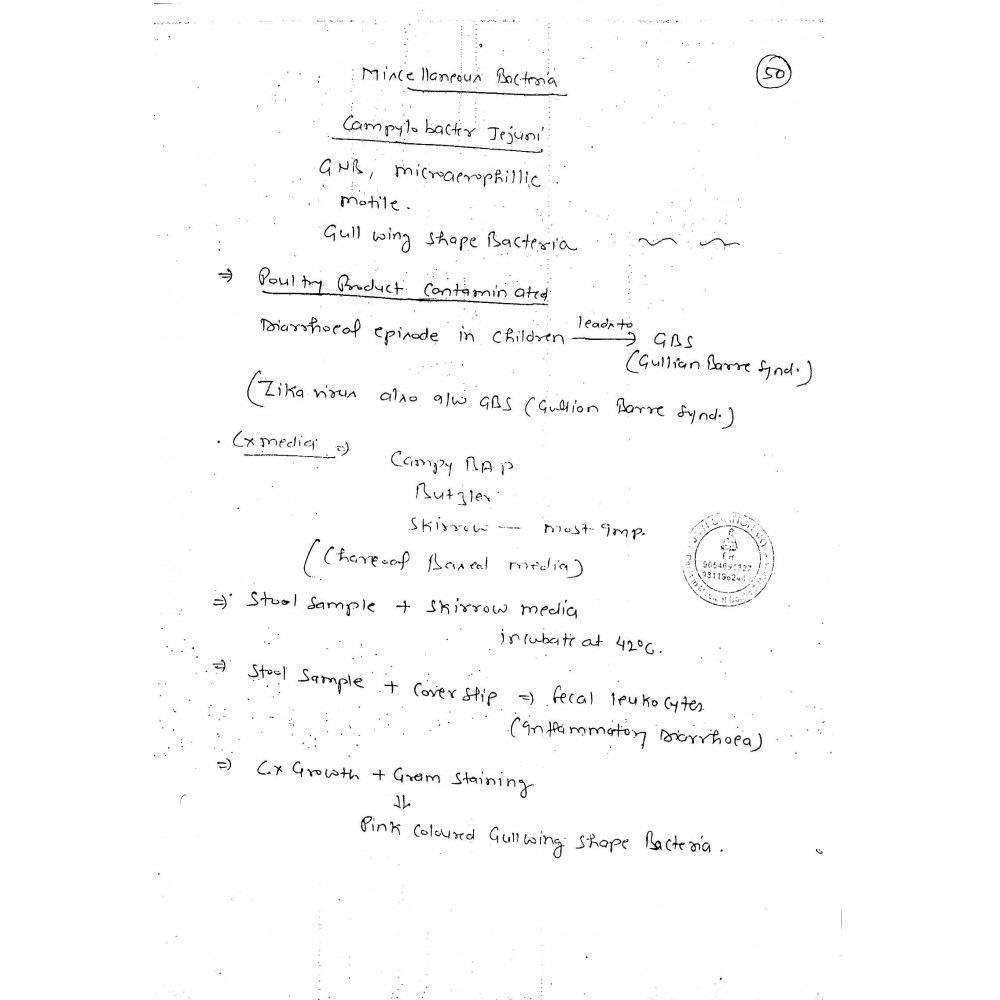 50
Miscellaneous Bacteria
Campylobacter Jejuni
GNB, microaerophillic.
motile.
Gull wing shape Bacteria
⇒ Poultry Product Contaminated
Diarrhoeal episode in children leads to → GBS
(Gullian Barre Synd.)
(Zika virus also a/w GBS (Gullian Barre Synd.)
Cx media ⇒
Campy BAP
Butzler
Skirrow — most imp.
(Charcoal Based media)
⇒ Stool Sample + Skirrow media
incubate at 42°C.
⇒ Stool Sample + Cover slip ⇒ fecal leukocytes
(Inflammatory Diarrhoea)
⇒ Cx Growth + Gram Staining
⇓
Pink coloured Gull wing shape Bacteria.